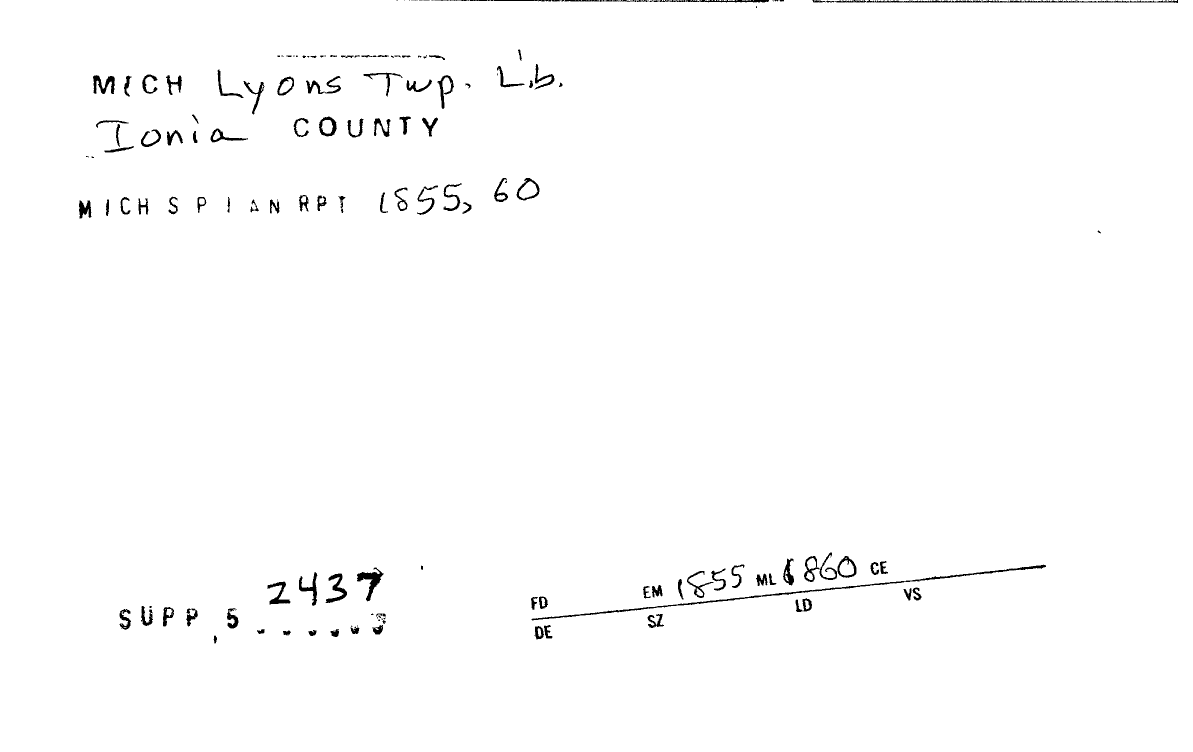 MICH Lyons Twp. Lib.
Ionia COUNTY
MICH S P I AN RPT 1855, 60
2437
SUPP, 5 ......
FD EM 1855 ML 1860 CE
DE SZ LD VS